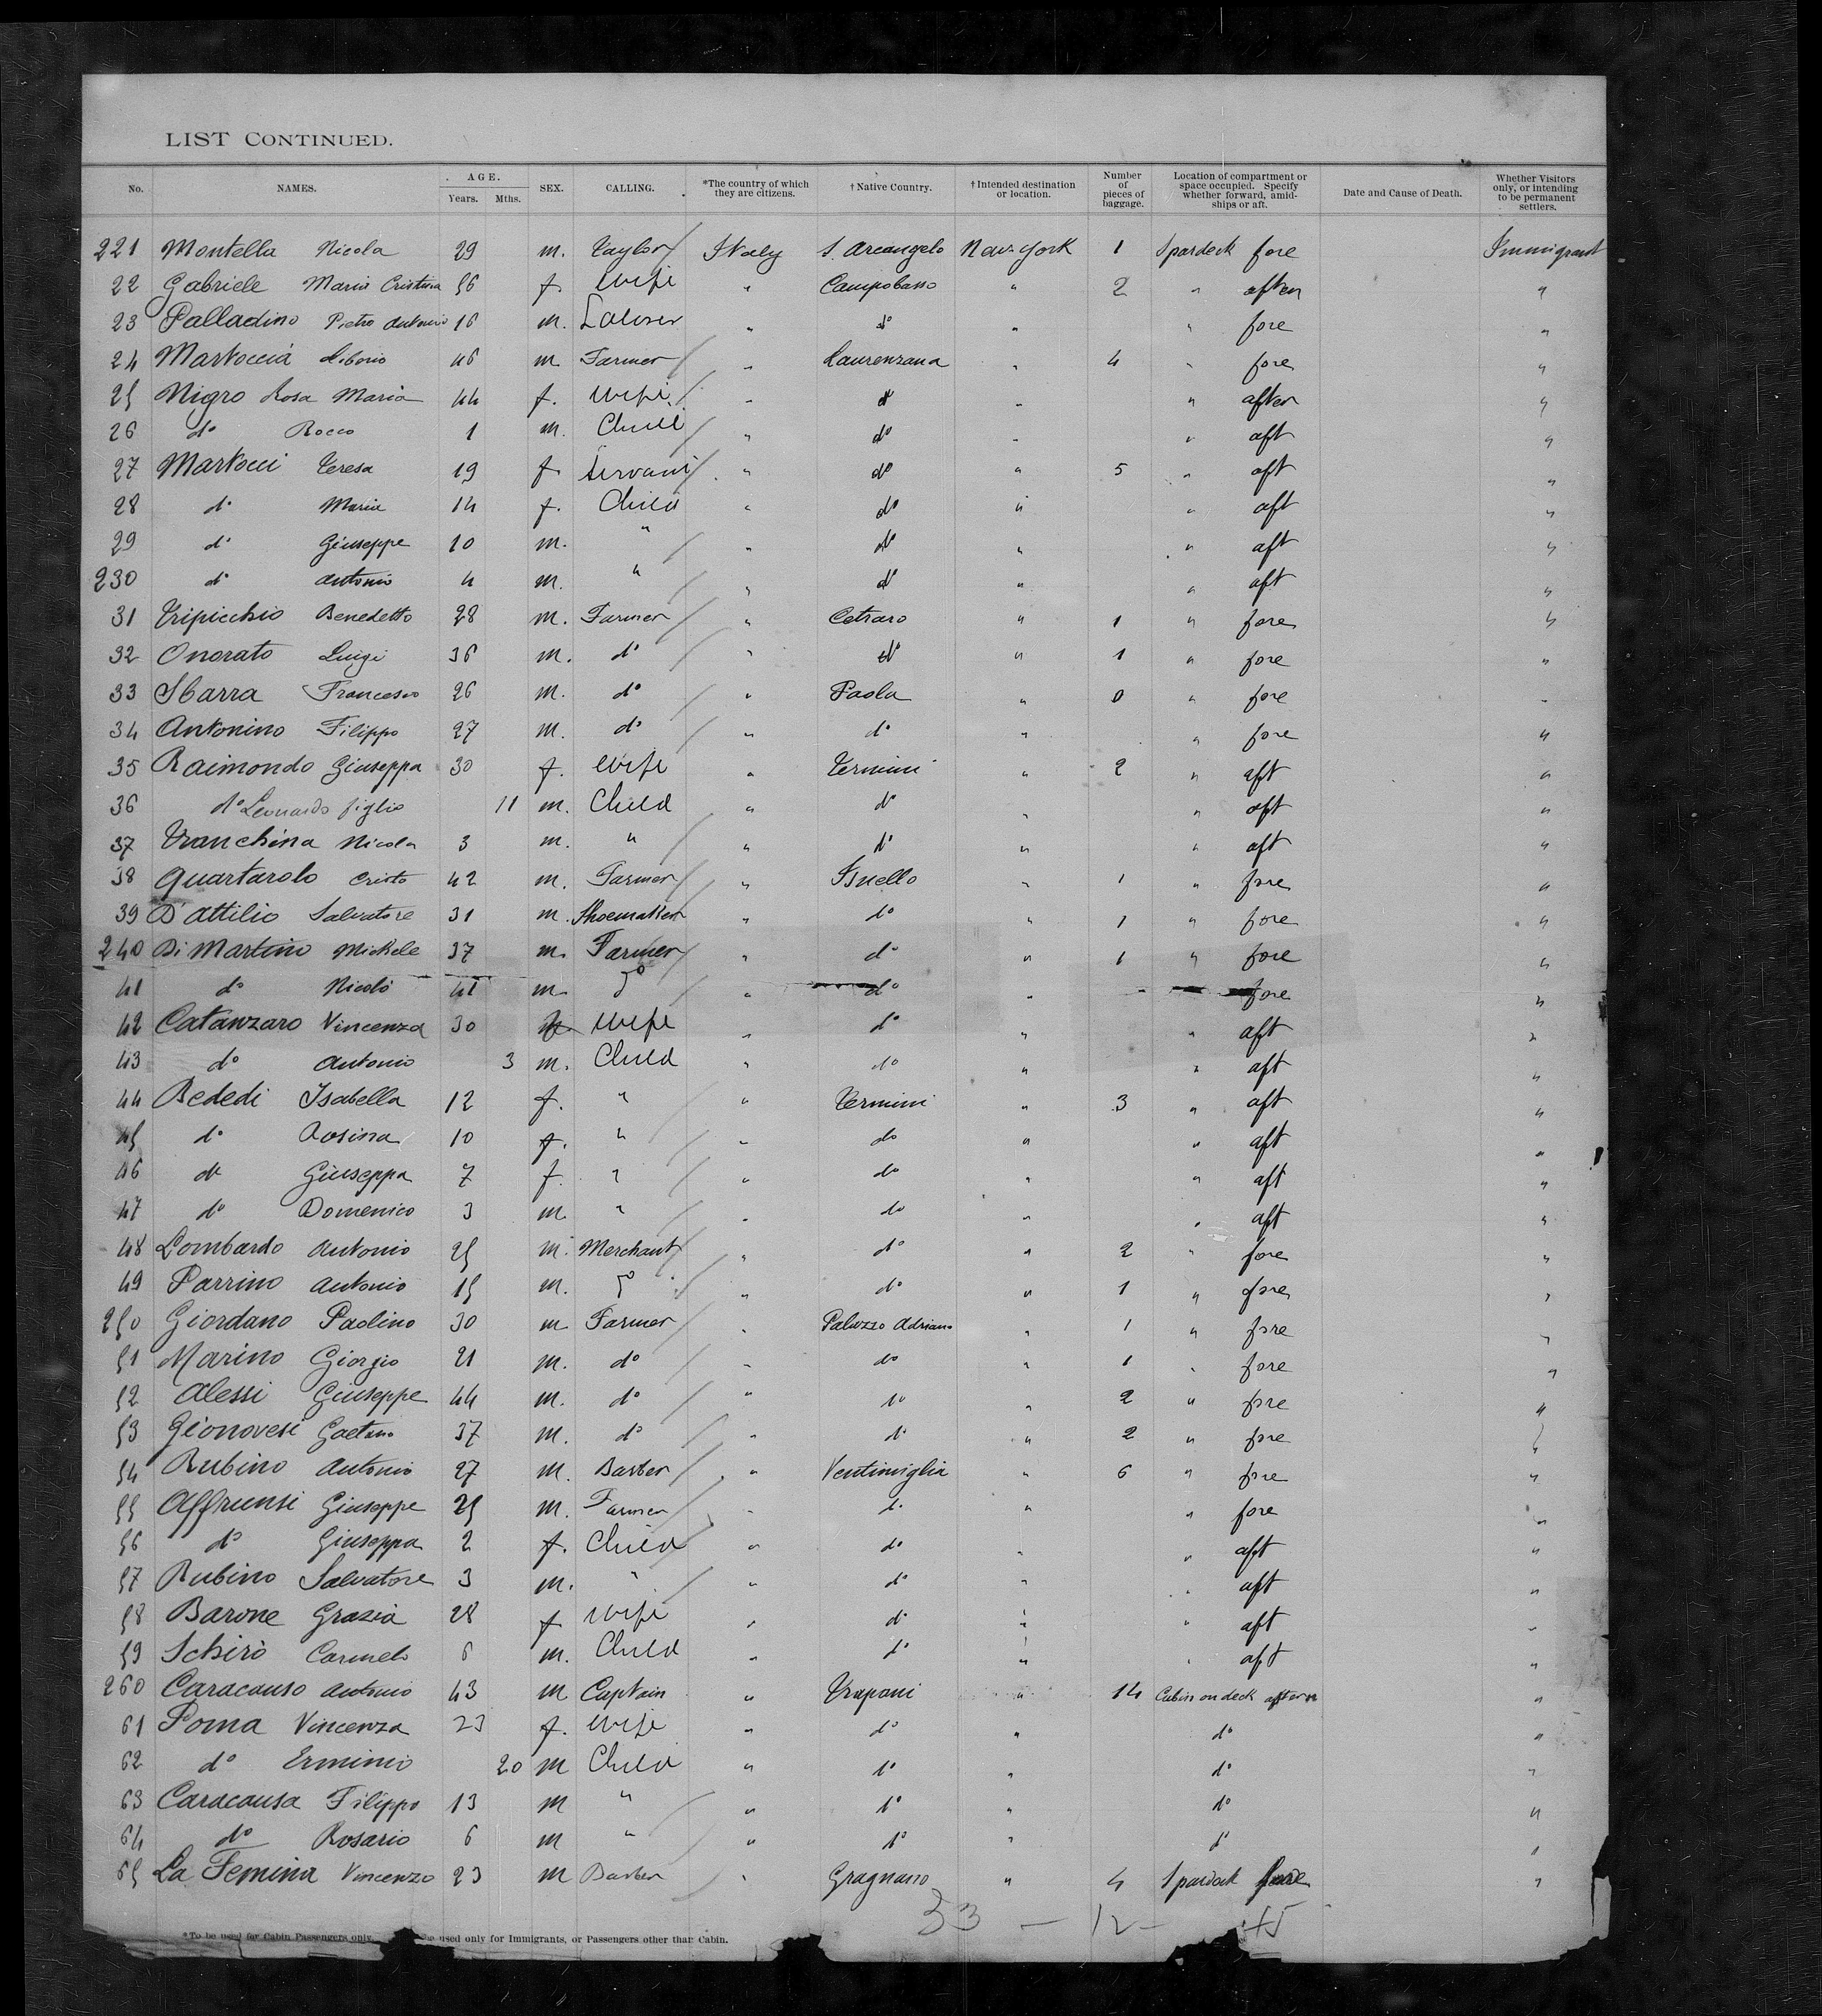 LIST CONTINUED.
No. NAMES. AGE. Years. Mths. SEX. CALLING. *The country of which they are citizens. †Native Country. †Intended destination or location. Number of pieces of baggage. Location of compartment or space occupied. Specify whether forward, amidships or aft. Date and Cause of Death. Whether Visitors only, or intending to be permanent settlers.
221 Montella Nicola 29 m. Taylor Italy S. Arcangelo New-York 1 Spardeck fore Immigrant
22 Gabriele Maria Cristina 56 f. Wife " Campobasso " 2 " after "
23 Palladino Pietro Antonio 16 m. Laborer " do " " fore "
24 Martoccia Liborio 46 m Farmer " Laurenzana " 4 " fore "
25 Nigro Rosa Maria 44 f. Wife " do " " after "
26 do Rocco 1 m. Child " do " " aft "
27 Martocci Teresa 19 f Servant " do " 5 " aft "
28 do Maria 14 f. Child " do " " aft "
29 do Giuseppe 10 m. " " do " " aft "
230 do Antonio 4 m. " " do " " aft "
31 Tripicchio Benedetto 28 m. Farmer " Cetraro " 1 " fore "
32 Onorato Luigi 36 m. do " do " 1 " fore "
33 Sbarra Francesco 26 m. do " Paola " 0 " fore "
34 Antonino Filippo 27 m. do " do " " fore "
35 Raimondo Giuseppa 30 f. Wife " Termini " 2 " aft "
36 do Leonardo figlio 11 m. Child " do " " aft "
37 Tranchina Nicola 3 m. " " do " " aft "
38 Quartarolo Cristo 42 m. Farmer " Isnello " 1 " fore "
39 D'Attilio Salvatore 31 m. Shoemaker " do " 1 " fore "
240 Di Martino Michele 37 m. Farmer " do " 1 " fore "
41 do Nicolò 41 m. do " do " fore "
42 Catanzaro Vincenza 30 f Wife " do " " aft "
43 do Antonio 3 m. Child " do " " aft "
44 Bededi Isabella 12 f. " " Termini " 3 " aft "
45 do Rosina 10 f. " " do " " aft "
46 do Giuseppa 7 f. " " do " " aft "
47 do Domenico 3 m. " " do " " aft "
48 Lombardo Antonio 25 m. Merchant " do " 2 " fore "
49 Parrino Antonio 15 m. do " do " 1 " fore "
250 Giordano Paolino 30 m Farmer " Palazzo Adriano " 1 " fore "
51 Marino Giorgio 21 m. do " do " 1 " fore "
52 Alessi Giuseppe 44 m. do " do " 2 " fore "
53 Gionovesi Gaetano 37 m. do " do " 2 " fore "
54 Rubino Antonio 27 m. Barber " Ventimiglia " 6 " fore "
55 Affrunsi Giuseppe 25 m. Farmer " do " " fore "
56 do Giuseppa 2 f. Child " do " " aft "
57 Rubino Salvatore 3 m. " " do " " aft "
58 Barone Grazia 28 f Wife " do " " aft "
59 Schirò Carmelo 6 m. Child " do " " aft "
260 Caracauso Antonio 43 m Captain " Trapani " 14 Cabin on deck aftern "
61 Poma Vincenza 23 f. Wife " do " do "
62 do Erminio 20 m Child " do " do "
63 Caracausa Filippo 13 m " " do " do "
64 do Rosario 6 m " " do " do "
65 La Femina Vincenzo 23 m Barber " Gragnano " 4 Spardeck fore "
33 — 12 —
*To be used for Cabin Passengers only. used only for Immigrants, or Passengers other than Cabin.